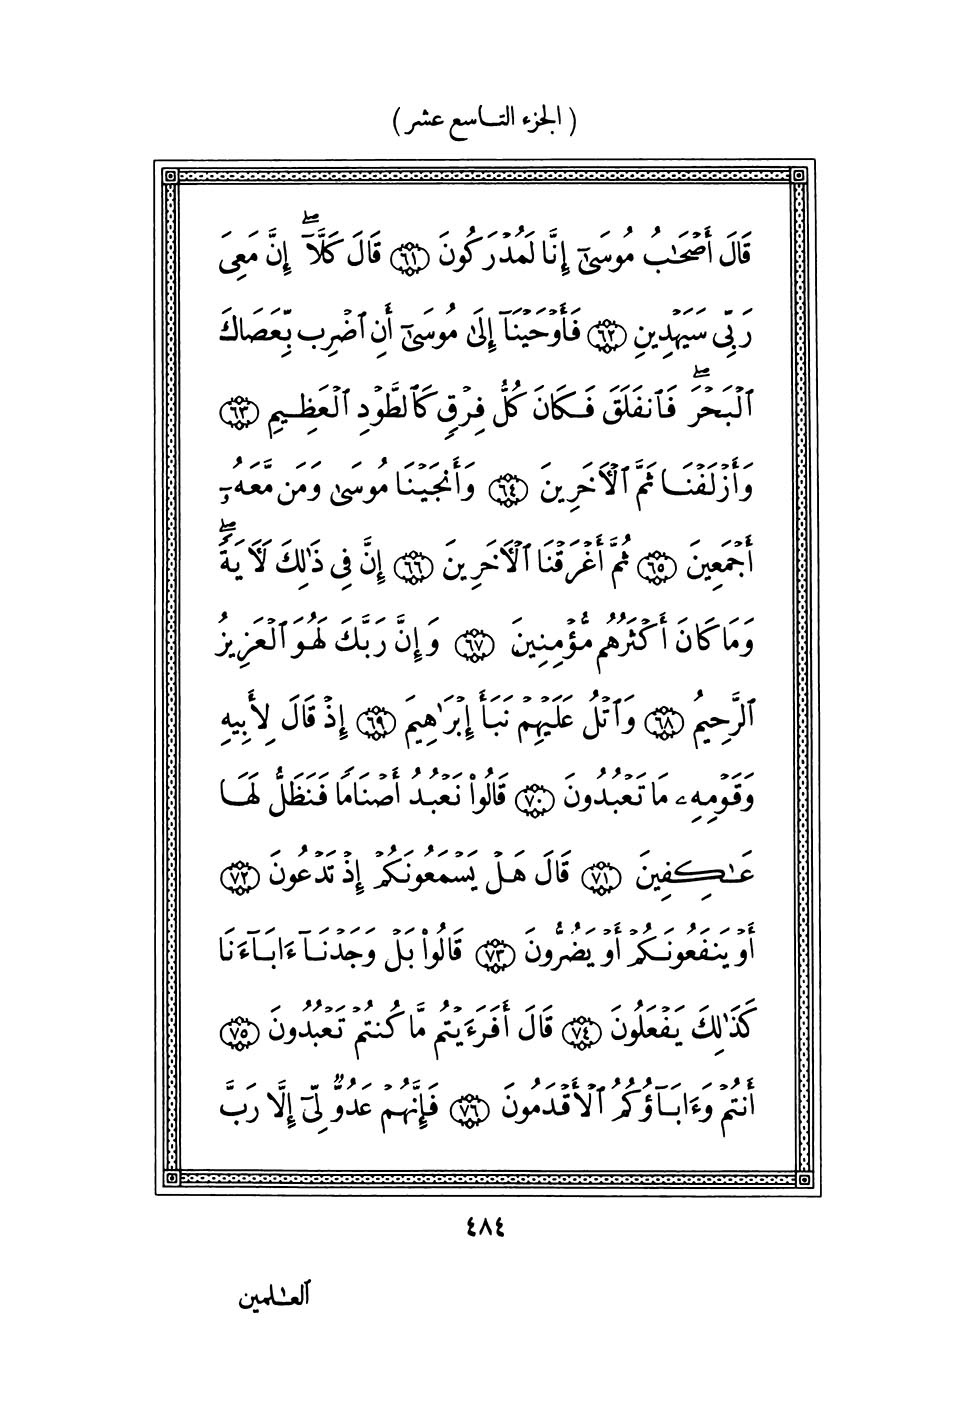 ( الجزء التاسع عشر )
قَالَ أَصْحَٰبُ مُوسَىٰٓ إِنَّا لَمُدْرَكُونَ ٦١ قَالَ كَلَّآۖ إِنَّ مَعِىَ
رَبِّى سَيَهْدِينِ ٦٢ فَأَوْحَيْنَآ إِلَىٰ مُوسَىٰٓ أَنِ ٱضْرِب بِّعَصَاكَ
ٱلْبَحْرَۖ فَٱنفَلَقَ فَكَانَ كُلُّ فِرْقٍ كَٱلطَّوْدِ ٱلْعَظِيمِ ٦٣
وَأَزْلَفْنَا ثَمَّ ٱلْأَخَرِينَ ٦٤ وَأَنجَيْنَا مُوسَىٰ وَمَن مَّعَهُۥٓ
أَجْمَعِينَ ٦٥ ثُمَّ أَغْرَقْنَا ٱلْأَخَرِينَ ٦٦ إِنَّ فِى ذَٰلِكَ لَأَيَةًۖ
وَمَا كَانَ أَكْثَرُهُم مُّؤْمِنِينَ ٦٧ وَإِنَّ رَبَّكَ لَهُوَ ٱلْعَزِيزُ
ٱلرَّحِيمُ ٦٨ وَٱتْلُ عَلَيْهِمْ نَبَأَ إِبْرَٰهِيمَ ٦٩ إِذْ قَالَ لِأَبِيهِ
وَقَوْمِهِۦ مَا تَعْبُدُونَ ٧٠ قَالُوا۟ نَعْبُدُ أَصْنَامًا فَنَظَلُّ لَهَا
عَٰكِفِينَ ٧١ قَالَ هَلْ يَسْمَعُونَكُمْ إِذْ تَدْعُونَ ٧٢
أَوْ يَنفَعُونَكُمْ أَوْ يَضُرُّونَ ٧٣ قَالُوا۟ بَلْ وَجَدْنَآ ءَابَآءَنَا
كَذَٰلِكَ يَفْعَلُونَ ٧٤ قَالَ أَفَرَءَيْتُم مَّا كُنتُمْ تَعْبُدُونَ ٧٥
أَنتُمْ وَءَابَآؤُكُمُ ٱلْأَقْدَمُونَ ٧٦ فَإِنَّهُمْ عَدُوٌّ لِّىٓ إِلَّا رَبَّ
٤٨٤
ٱلعَٰلمين